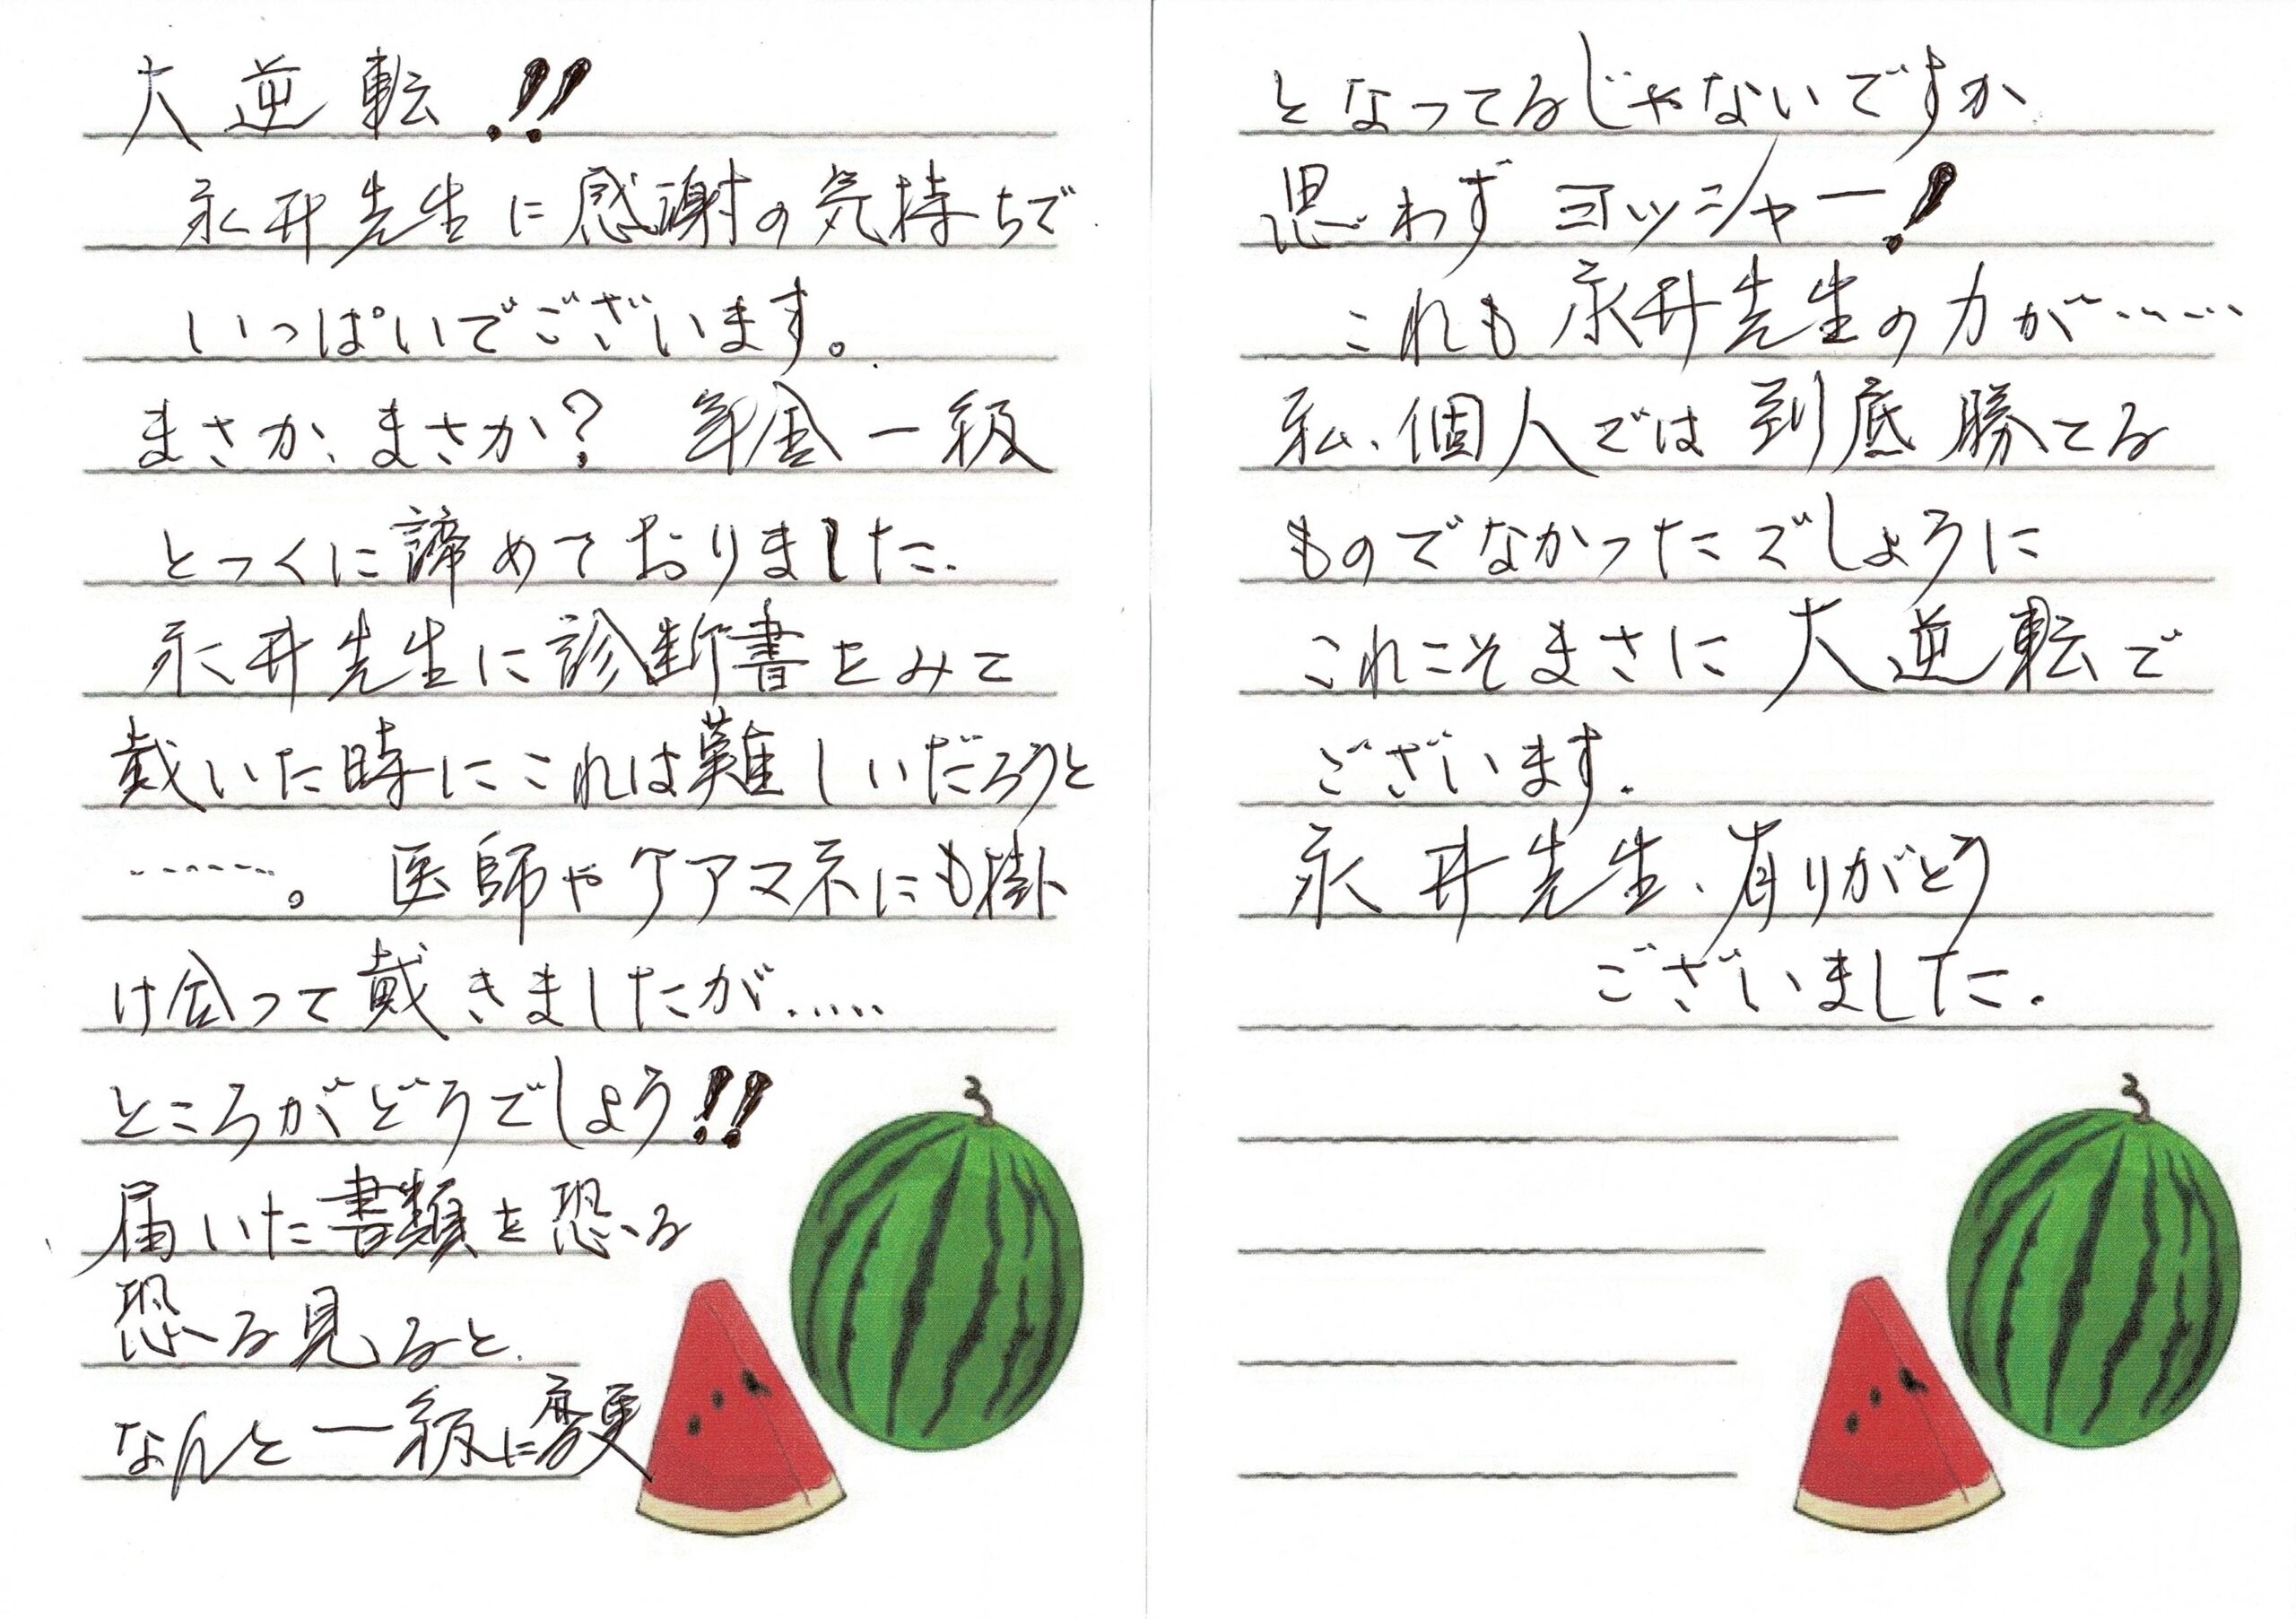 大逆転!!
永井先生に感謝の気持ちで
いっぱいでございます。
まさか、まさか? 年金一級
とっくに諦めておりました.
永井先生に診断書をみて
戴いた時にこれは難しいだろうと
……。 医師やケアマネにも掛
け合って戴きましたが.....
ところがどうでしょう!!
届いた書類を恐る
恐る見ると.
なんと一級に変更
となってるじゃないですか
思わずヨッシャー!
これも永井先生の力が……
私、個人では到底勝てる
ものでなかったでしょうに
これこそまさに大逆転で
ございます.
永井先生、有りがとう
ございました.